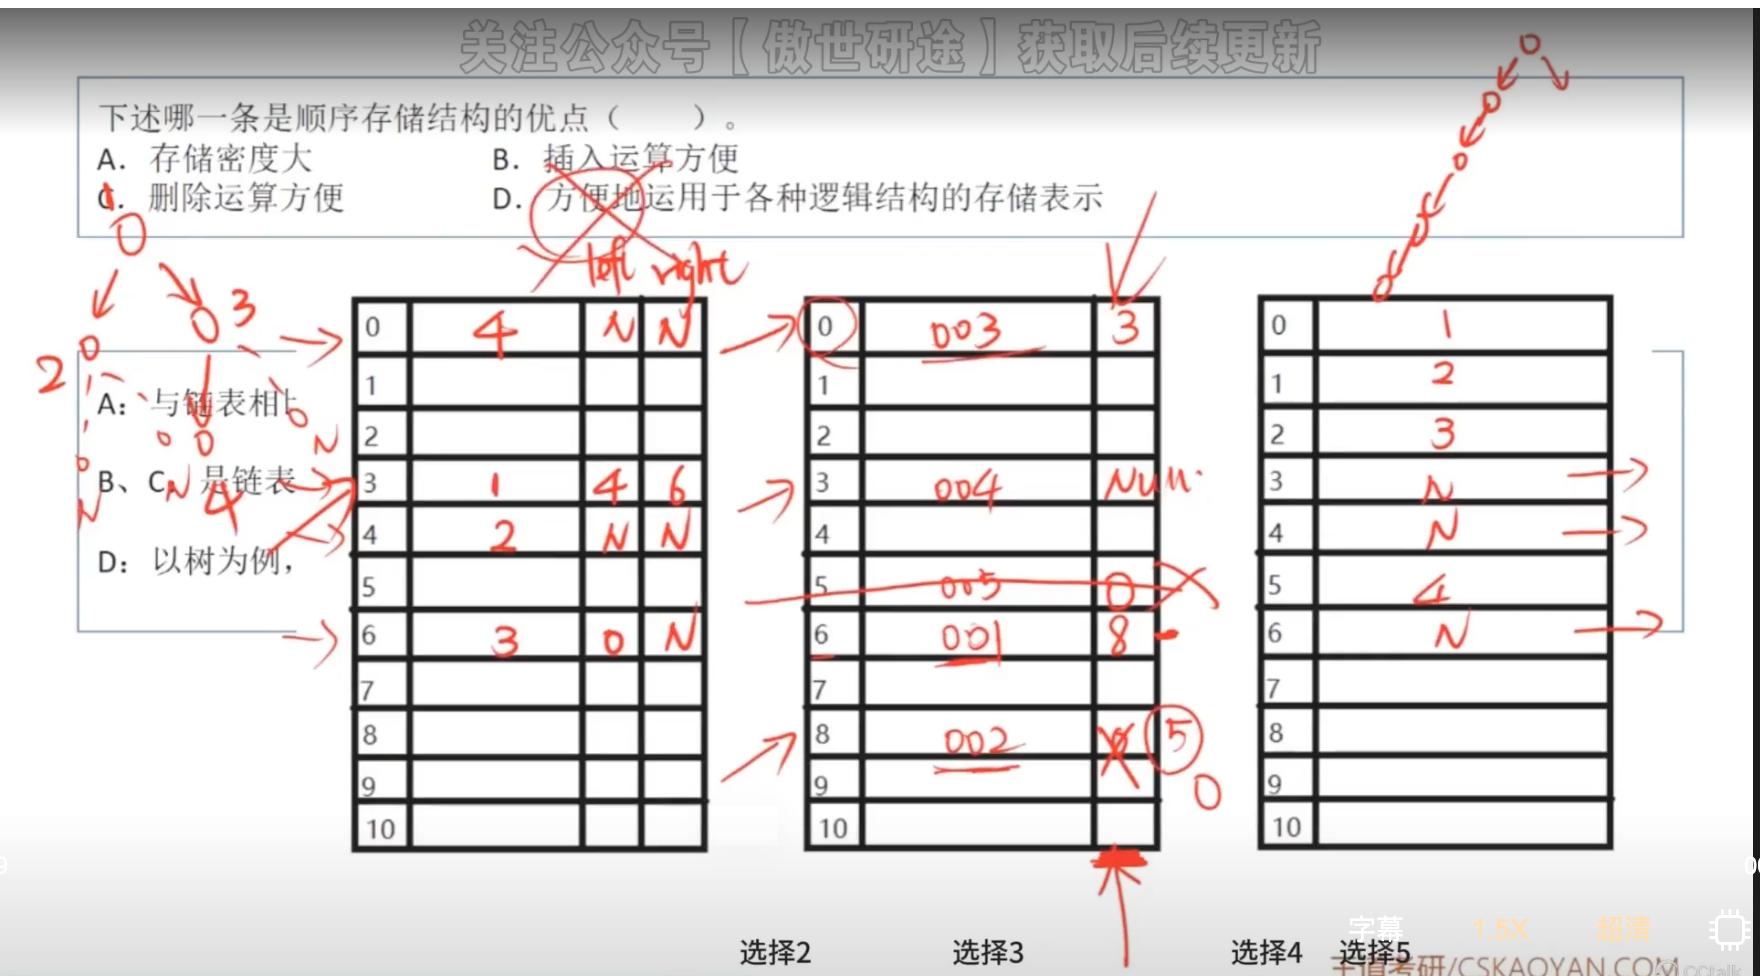 关注公众号【傲世研途】获取后续更新
下述哪一条是顺序存储结构的优点（　　）。
A. 存储密度大
B. 插入运算方便
C. 删除运算方便
D. 方便地运用于各种逻辑结构的存储表示
left right
1
3
2
4
N
N
N
A: 与链表相
B、C: 是链表
D: 以树为例，
0 4 N N
1
2
3 1 4 6
4 2 N N
5
6 3 0 N
7
8
9
10
0 003 3
1
2
3 004 Null
4
5 005 0
6 001 8
7
8 002 5
0
9
10
0 1
1 2
2 3
3 N
4 N
5 4
6 N
7
8
9
10
字幕 1.5X 超清
选择2 选择3 选择4 选择5
王道考研/CSKAOYAN.COM